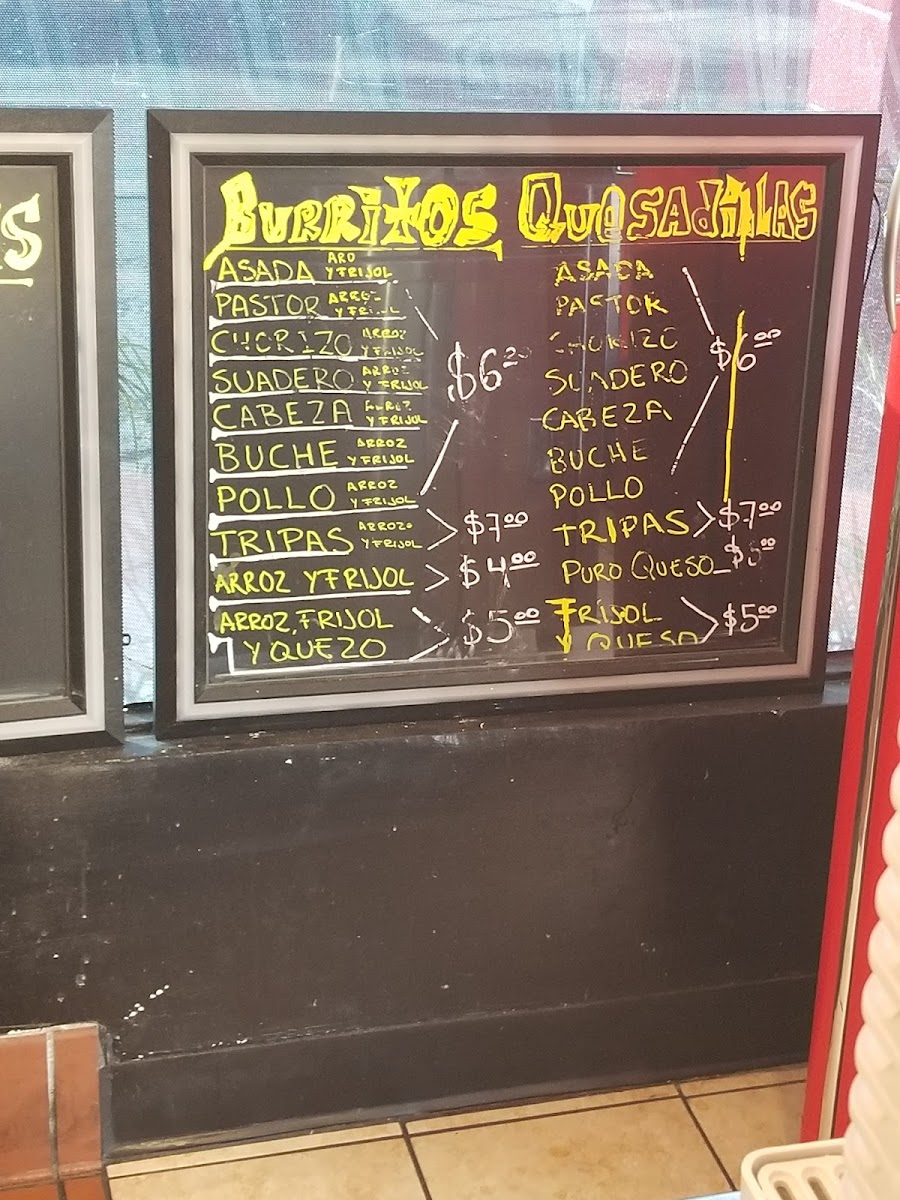 S
BURRITOS
ASADA ARO Y FRIJOL
PASTOR ARROZ Y FRIJOL
CHORIZO ARROZ Y FRIJOL
SUADERO ARROZ Y FRIJOL
CABEZA ARROZ Y FRIJOL
BUCHE ARROZ Y FRIJOL
POLLO ARROZ Y FRIJOL
TRIPAS ARROZO Y FRIJOL
ARROZ Y FRIJOL
ARROZ, FRIJOL
Y QUEZO
$7.00
$4.00
$5.00
QUESADILLAS
ASADA
PASTOR
CHORIZO
SUADERO
CABEZA
BUCHE
POLLO
$6.00
TRIPAS $7.00
PURO QUESO
FRISOL
Y QUESO
$5.00